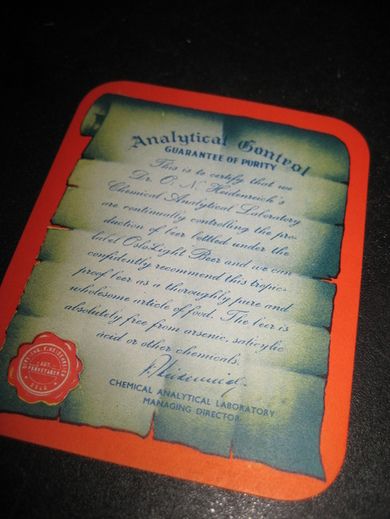 Analytical Control
GUARANTEE OF PURITY
This is to certify that we
Dr. O. N. Heidenreich's
Chemical Analytical Laboratory
are continually controlling the pro-
duction of beer bottled under the
label OsloLight Beer and we can
confidently recommend this tropic-
proof beer as a thoroughly pure and
wholesome article of food. The beer is
absolutely free from arsenic, salicylic
acid or other chemicals.
CHEMICAL ANALYTICAL LABORATORY
MANAGING DIRECTOR